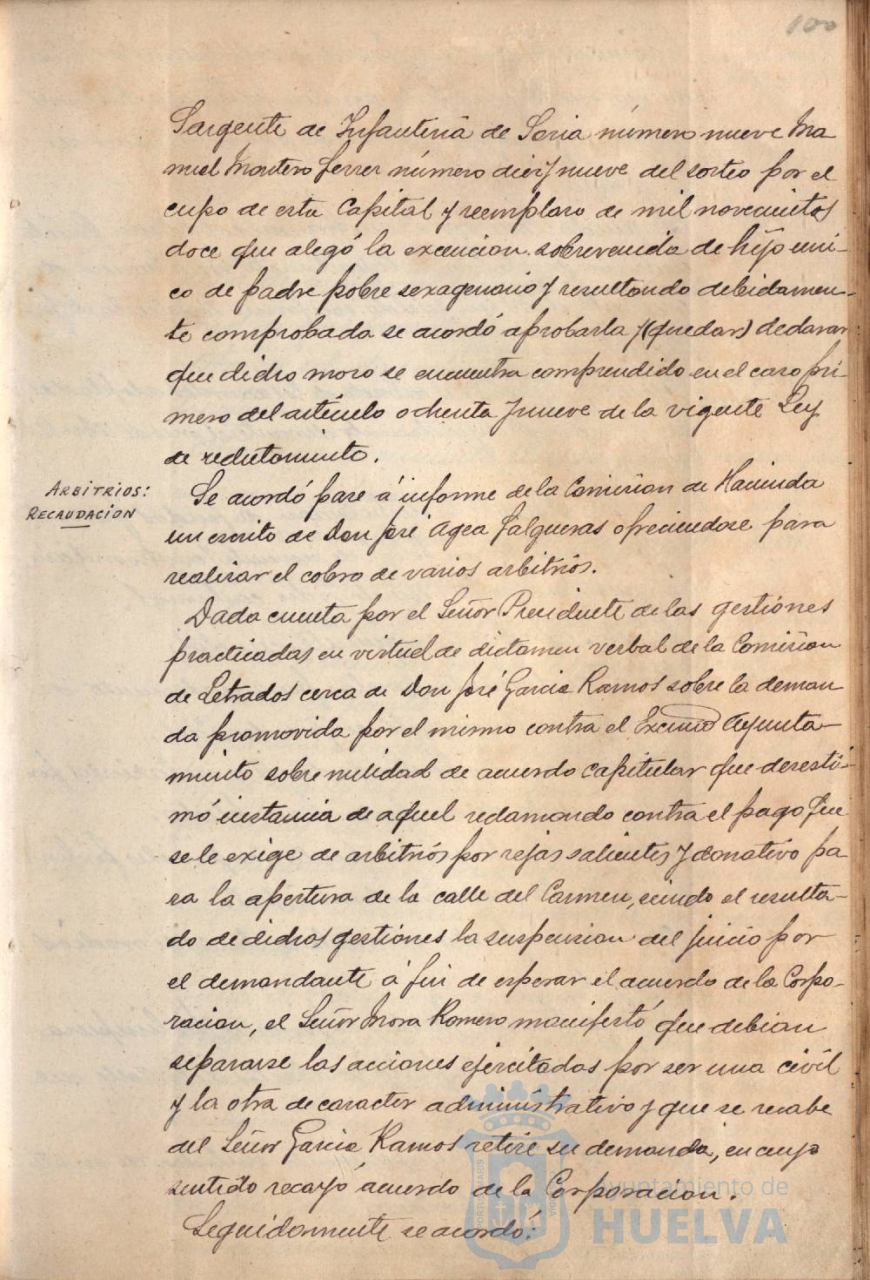 100
Sargento de Infanteria de Soria número nueve Ma
nuel Montero Ferrer número diez y nueve del sorteo por el
cupo de esta Capital y reemplazo de mil novecientos
doce que alegó la excencion sobrevenida de hijo uni-
co de padre pobre sexagenario y resultando debidamen-
te comprobada se acordó aprobarla y (quedar) declarar
que dicho mozo se encuentra comprendido en el caso pri-
mero del artículo ochenta y nueve de la vigente Ley
de reclutamiento.
ARBITRIOS:
RECAUDACION
Se acordó pase á informe de la Comision de Hacienda
un escrito de Don José Agea Falgueras ofreciendose para
realizar el cobro de varios arbitrios.
Dada cuenta por el Señor Presidente de las gestiones
practicadas en virtud de dictamen verbal de la Comision
de Letrados cerca de Don José Garcia Ramos sobre la deman
da promovida por el mismo contra el Excmo Ayunta-
miento sobre nulidad de acuerdo capitular que desesti-
mó instancia de aquel reclamando contra el pago que
se le exige de arbitrios por rejas salientes y donativo pa
ra la apertura de la calle del Carmen, siendo el resulta-
do de dichas gestiones la suspension del juicio por
el demandante á fin de esperar el acuerdo de la Corpo-
racion, el Señor Mora Romero manifestó que debian
separarse las acciones ejercitadas por ser una civil
y la otra de caracter administrativo y que se recabe
del Señor Garcia Ramos retire su demanda, en cuyo
sentido recayó acuerdo de la Corporacion.
Seguidamente se acordó:
Ayuntamiento de
HUELVA